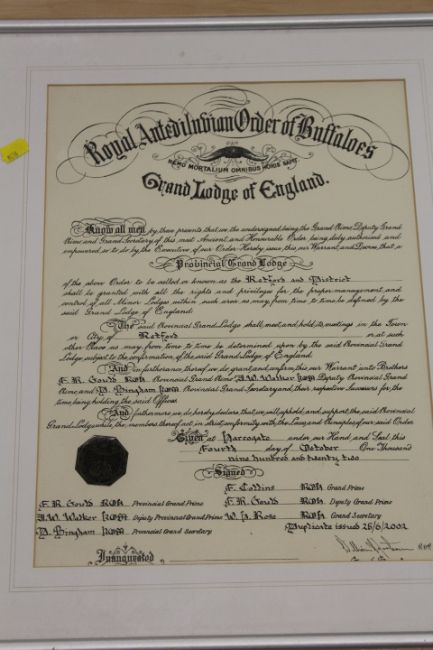 Royal Antediluvian Order of Buffaloes
NEMO MORTALIUM OMNIBUS HORIS SAPIT
Grand Lodge of England.
Know all men, by these presents that we, the undersigned, being the Grand Primo, Deputy Grand
Primo and Grand Secretary of this most Ancient and Honourable Order being duly authorised and
empowered so to do by the Executive of our Order Hereby issue this, our Warrant, and Decree, that a
Provincial Grand Lodge
of the above Order to be called or known as the Retford and District
shall be granted with all the rights and privileges for the proper management and
control of all Minor Lodges within such area as may, from time to time be defined by the
said Grand Lodge of England:
The said Provincial Grand Lodge shall meet, and hold its meetings in the Town
or City of Retford or at such
other Place as may from time to time be determined upon by the said Provincial Grand
Lodge subject to the confirmation of the said Grand Lodge of England
And furthermore, we do grant and confirm this our Warrant unto Brothers
F. R. Gould ROH Provincial Grand Primo J. W. Walker ROM Deputy Provincial Grand
Primo and D. Bingham ROM Provincial Grand Secretary and their respective Successors for the
time being holding the said Offices.
And furthermore, we do hereby declare that we will uphold and support the said Provincial
Grand Lodge while the members thereof act in strict conformity with the Laws and Principles of our said Order
Given at Harrogate under our Hand and Seal this
Fourth day of October One Thousand
nine hundred and twenty two
Signed
F. Collins ROH Grand Primo
F. R. Gould ROH Provincial Grand Primo F. R. Gould ROH Deputy Grand Primo
J. W. Walker ROM Deputy Provincial Grand Primo W. J. Rose ROH Grand Secretary
D. Bingham ROM Provincial Grand Secretary Duplicate issued 26/6/2002
Inaugurated